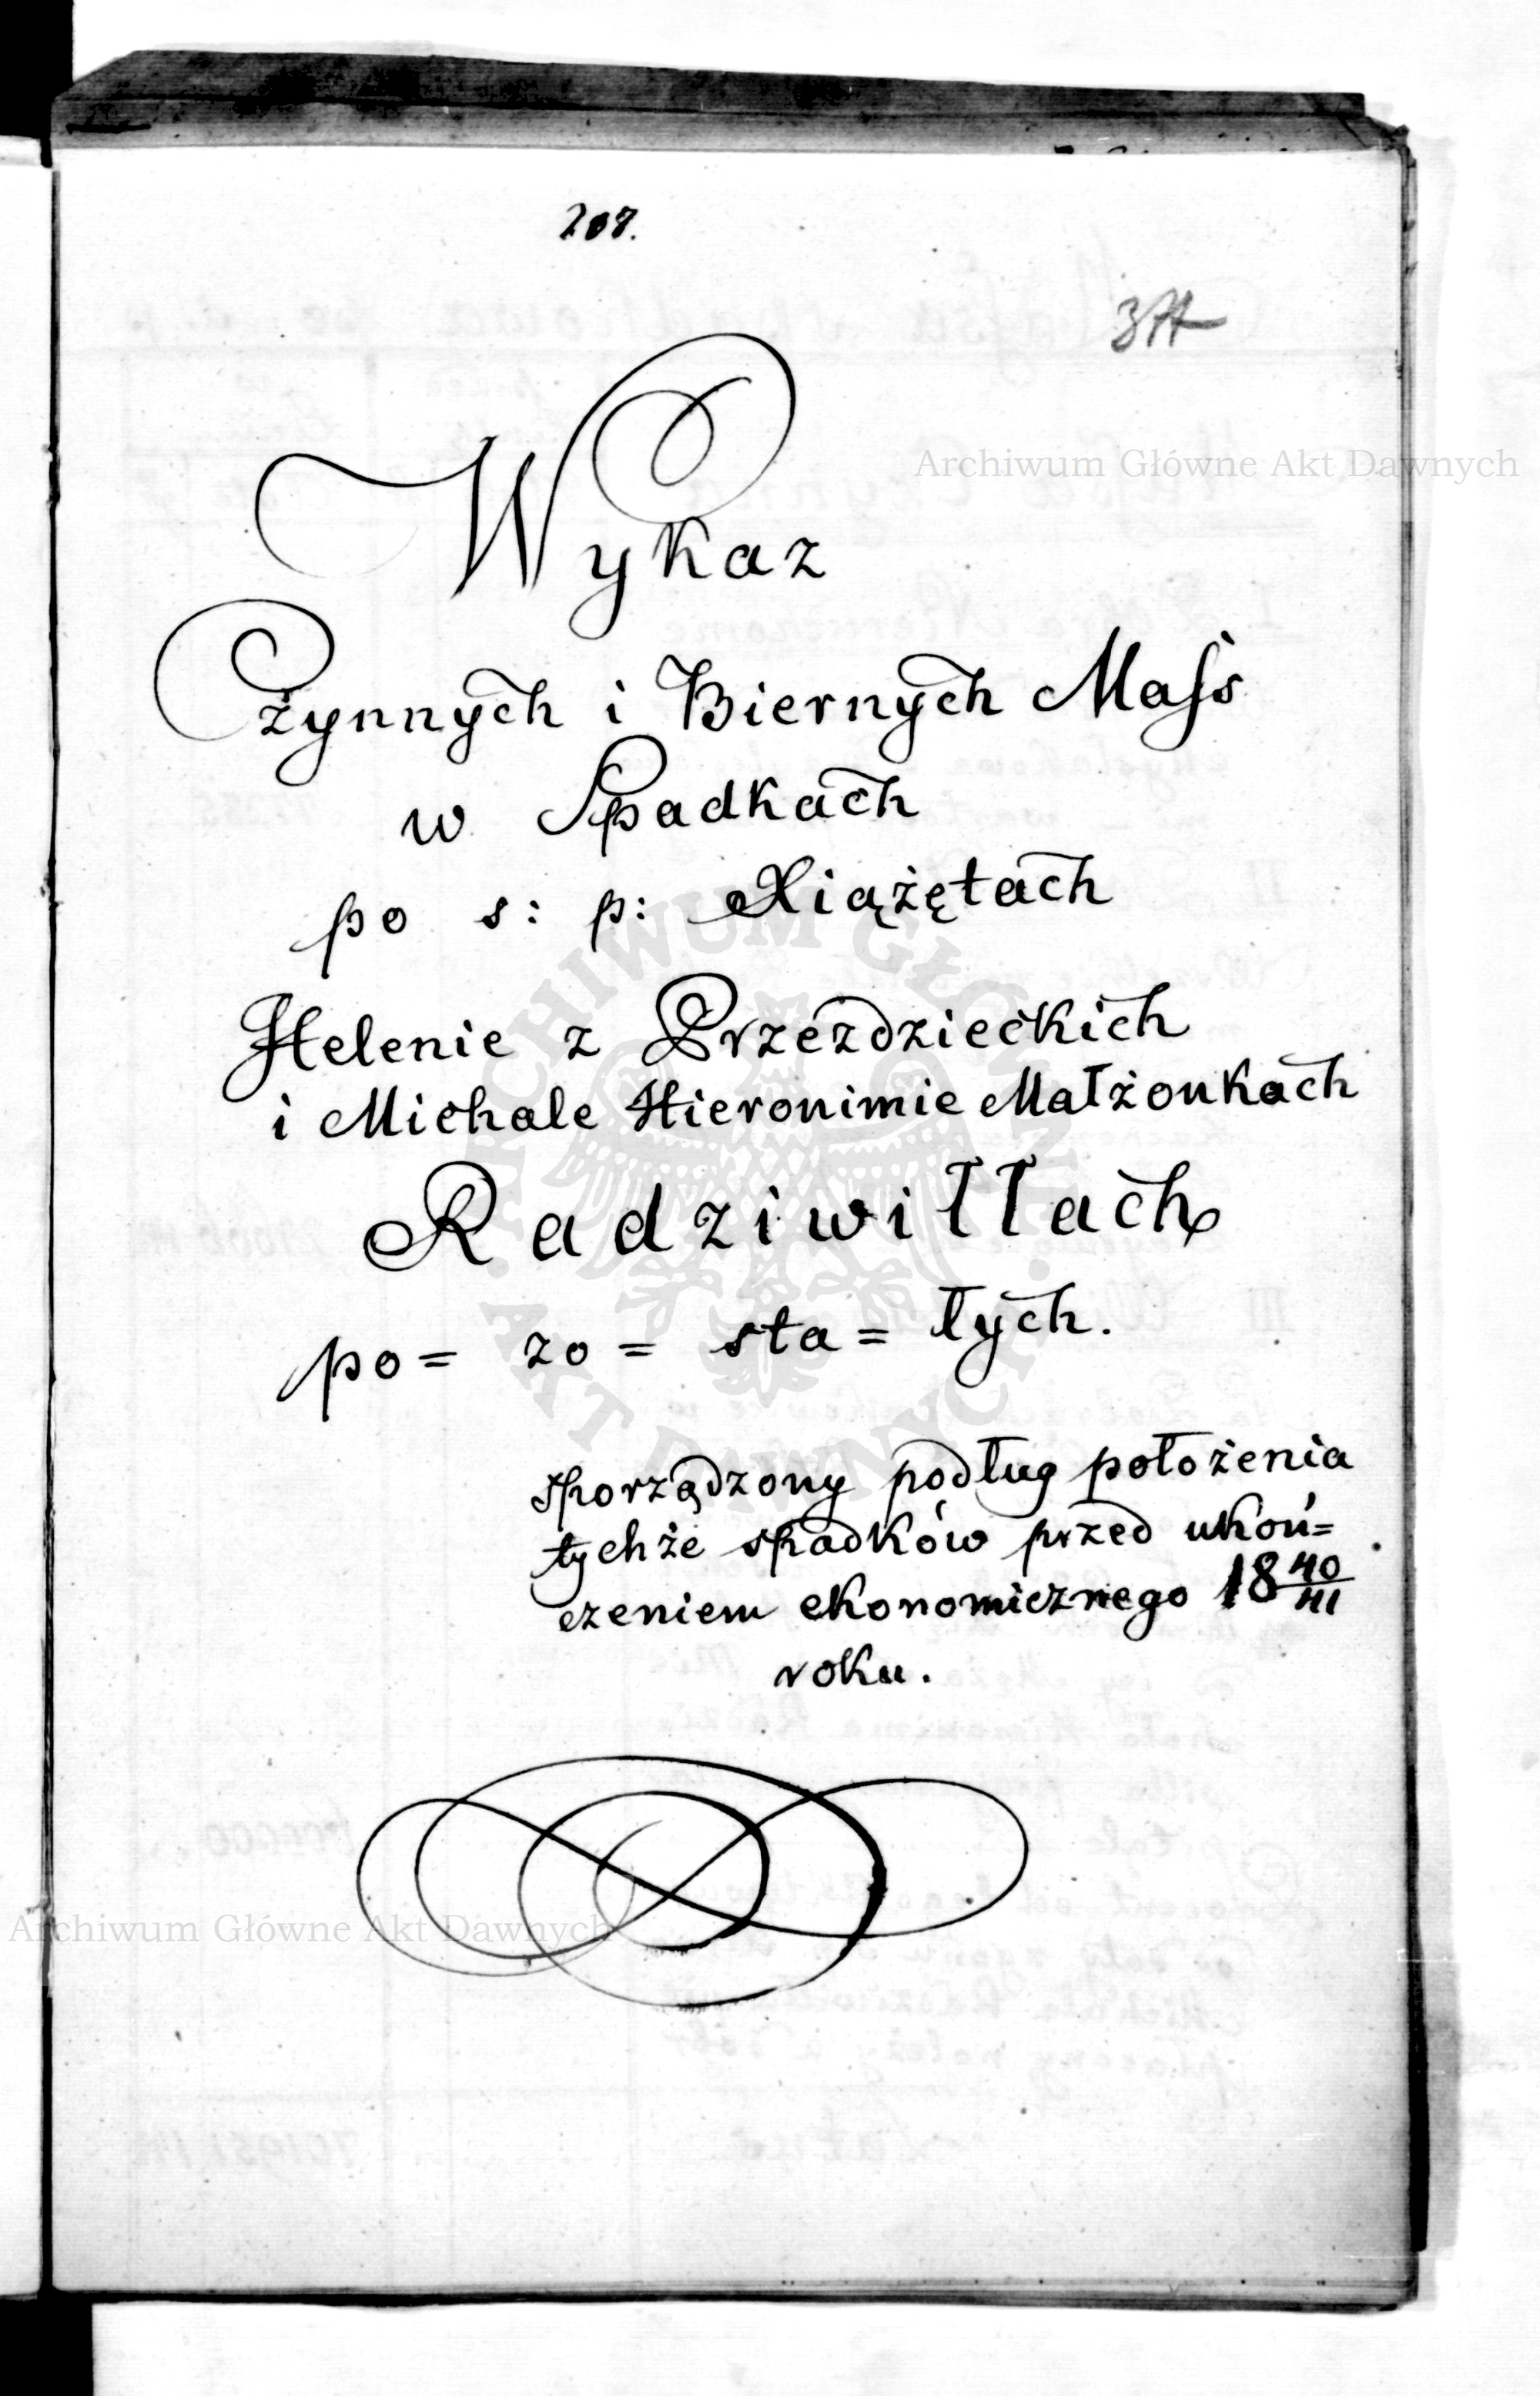 208.
Archiwum Główne Akt Dawnych
Wykaz
Czynnych i Biernych Mass
w Spadkach
po s: p: Xiążętach
Helenie z Przezdzieckich
i Michale Hieronimie Małżonkach
Radziwiłłach
po= zo= sta= łych.
sporządzony podług położenia
tychże spadków przed ukoń=
czeniem ekonomicznego 18 40/41
roku.
ARCHIWUM GŁÓWNE AKT DAWNYCH
Archiwum Główne Akt Dawnych